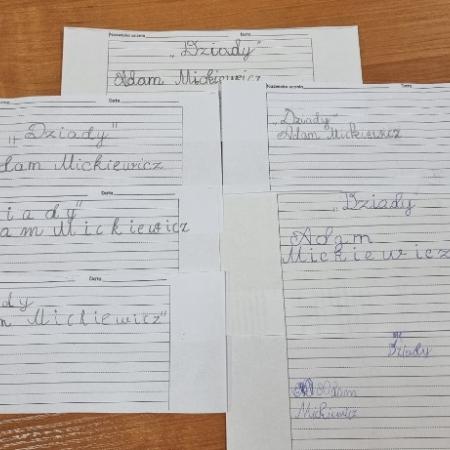 Nazwisko ucznia Data
„Dziady"
Adam Mickiewicz
Data
„Dziady"
dam Mickiewicz
Data
iady"
am Mickiewicz
Data
dy
m Mickiewicz"
Nazwisko ucznia Data
„Dziady"
Adam Mickiewicz
„Dziady"
Adam
Mickiewicz
Dziady
Adam
Mickiewicz